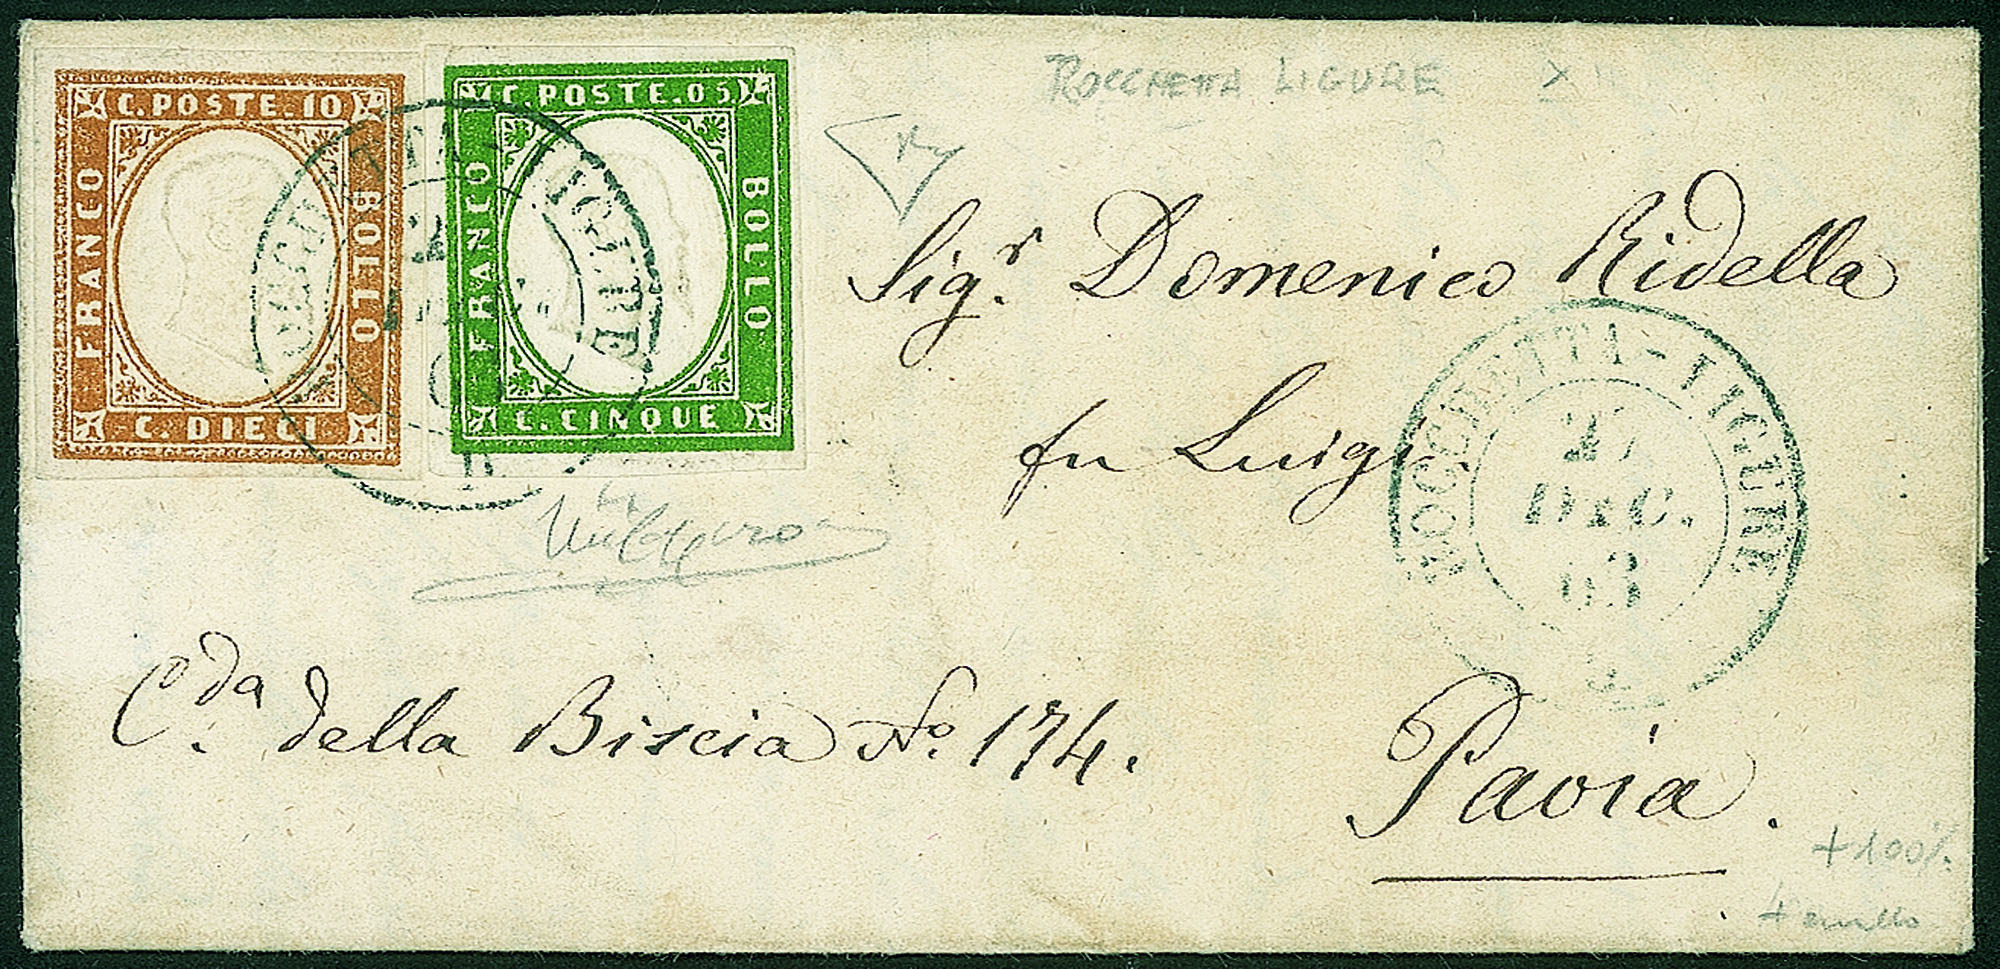 C. POSTE. 10
FRANCO
BOLLO
C. DIECI
C. POSTE. 05
FRANCO
BOLLO
C. CINQUE
ROCCHETTA LIGURE
Sig.r Domenico Ridella
fu Luigi.
ROCCHETTA-LIGURE
27
DEC.
63
C.da della Biscia No. 174.
Pavia.
+100%
+ anello